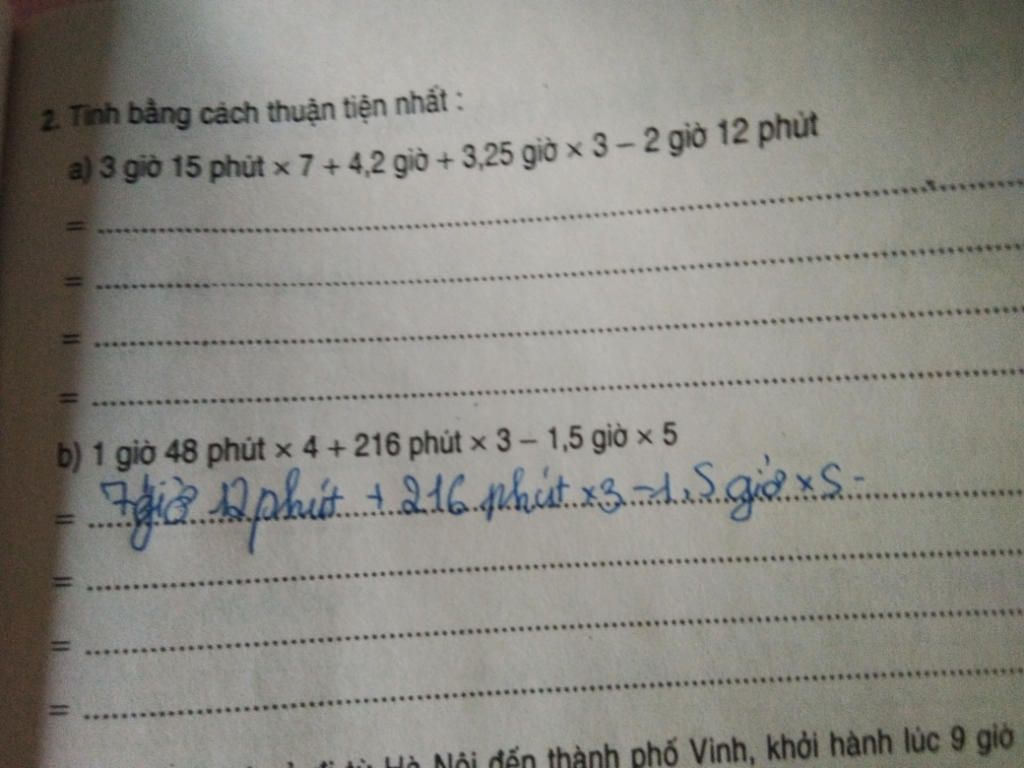 2. Tính bằng cách thuận tiện nhất :
a) 3 giờ 15 phút × 7 + 4,2 giờ + 3,25 giờ × 3 – 2 giờ 12 phút
=
=
=
=
b) 1 giờ 48 phút × 4 + 216 phút × 3 – 1,5 giờ × 5
= 7 giờ 12 phút + 216 phút × 3 - 1,5 giờ × 5 -
=
=
=
đi từ Hà Nội đến thành phố Vinh, khởi hành lúc 9 giờ